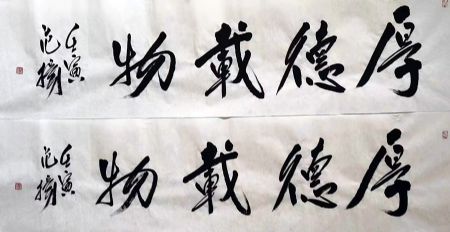 厚德載物
壬寅
厚德載物
壬寅